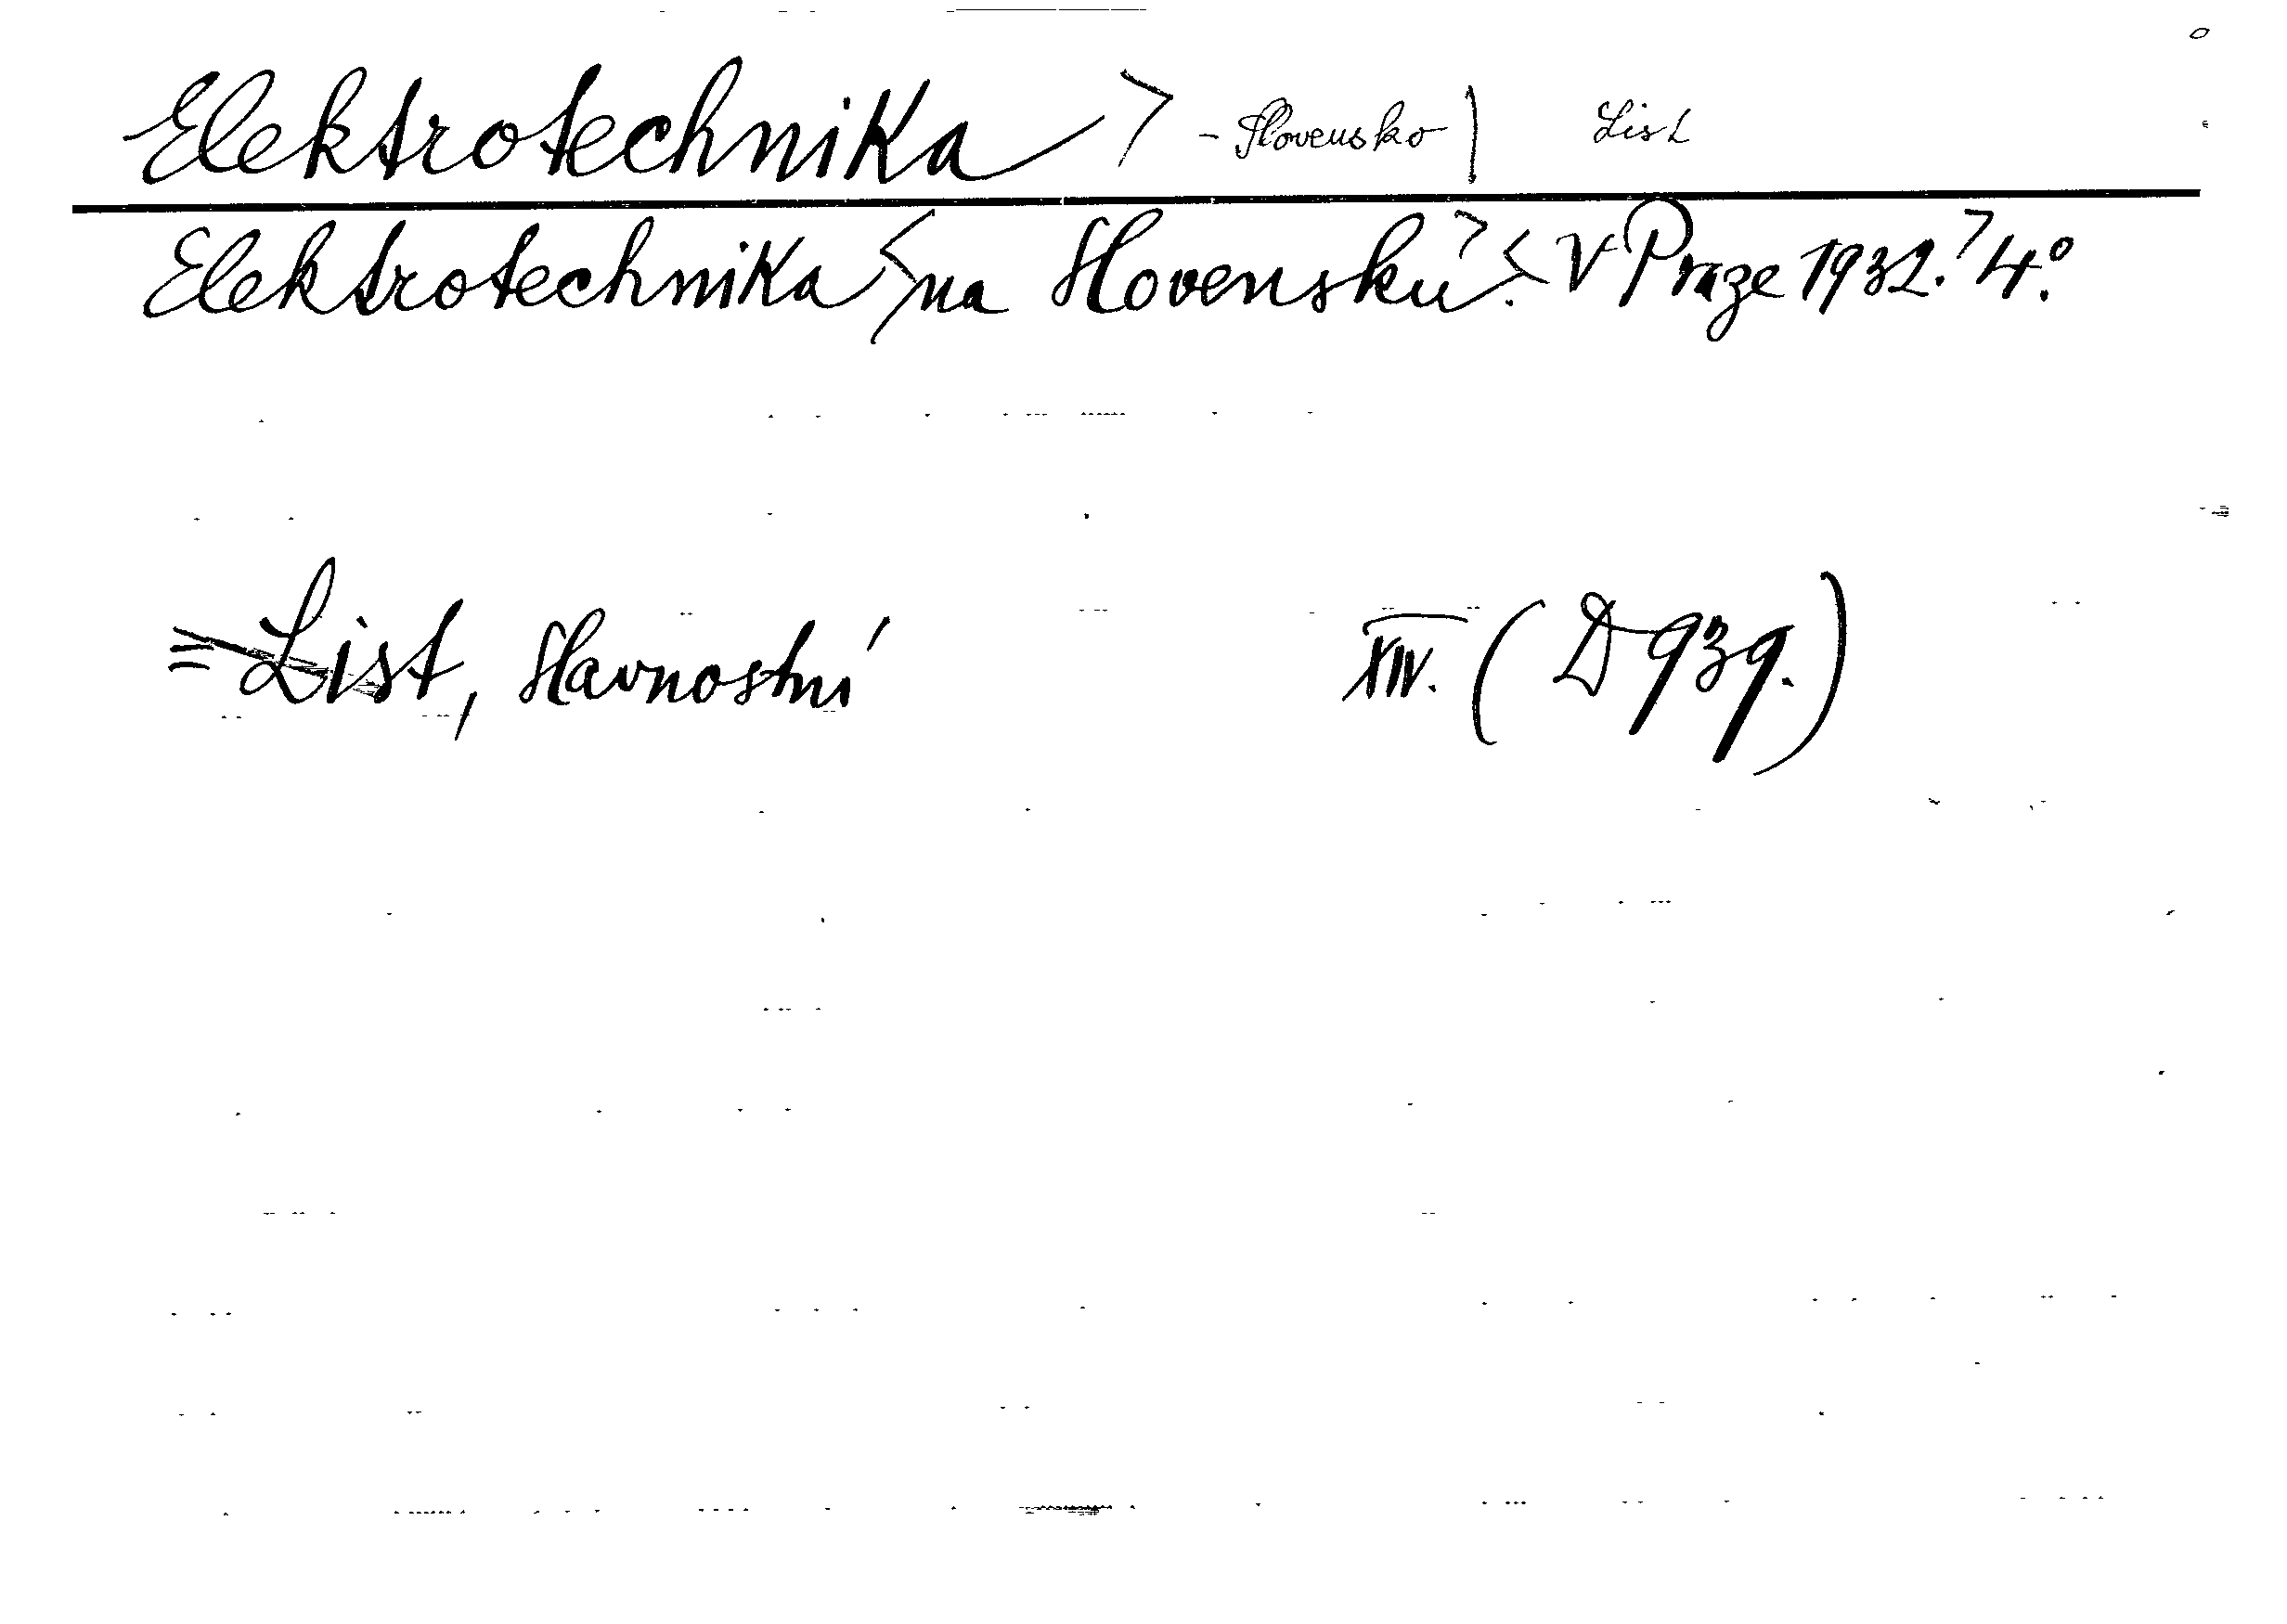 Elektrotechnika > - Slovensko | List
Elektrotechnika < na Slovensku >. < V Praze 1932. > 4°.
= List, Slavnostní XIV. (D 939.)